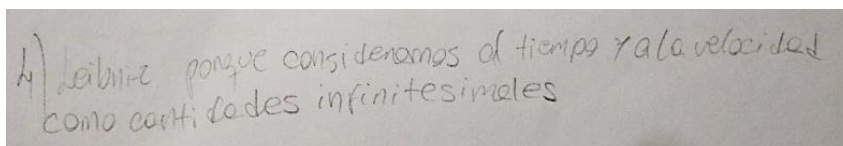 4) Leibniz porque considenamos al tiempo y a la velocidad
como cantidades infinitesimales